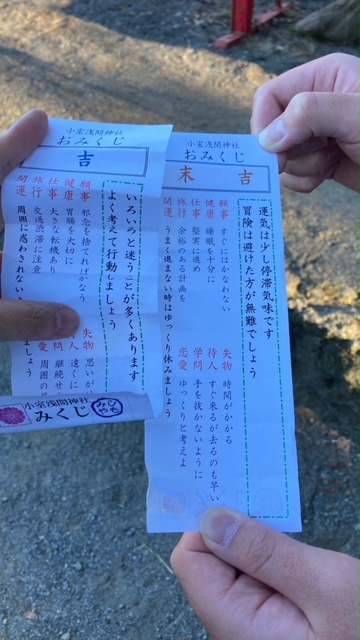 小室浅間神社
おみくじ
末吉
運気は少し停滞気味です
冒険は避けた方が無難でしょう
願事 すぐにはかなわない
健康 睡眠を十分に
仕事 堅実に進め
旅行 余裕のある計画を
開運 うまく進まない時はゆっくり休みましょう
失物 時間がかかる
待人 すぐ来るが去るのも早い
学問 手を抜かないように
恋愛 ゆっくりと考えよ
小室浅間神社
おみくじ
吉
いろいろと迷うことが多くあります
よく考えて行動しましょう
願事 邪念を捨てればかなう
健康 胃腸を大切に
仕事 大きな転機あり
旅行 交通渋滞に注意
開運 周囲に惑わされない
ましょう
失物 思いが
人 遠くに
問 継続せ
愛 周囲の
小室浅間神社
みくじ